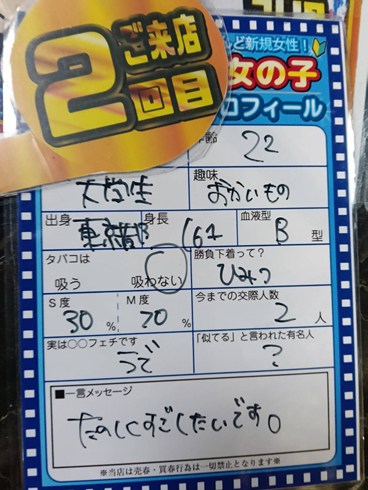 ご来店
2回目
ど新規女性!
女の子
ロフィール
齢 22
大学生
趣味 おかいもの
出身 東京都 身長 161 血液型 B 型
タバコは 吸う 吸わない
勝負下着って? ひみつ
S度 30 % M度 70 %
今までの交際人数 2 人
実は○○フェチです うで
「似てる」と言われた有名人 ?
■一言メッセージ
たのしくすごしたいです。
※当店は売春・買春行為は一切禁止となります※